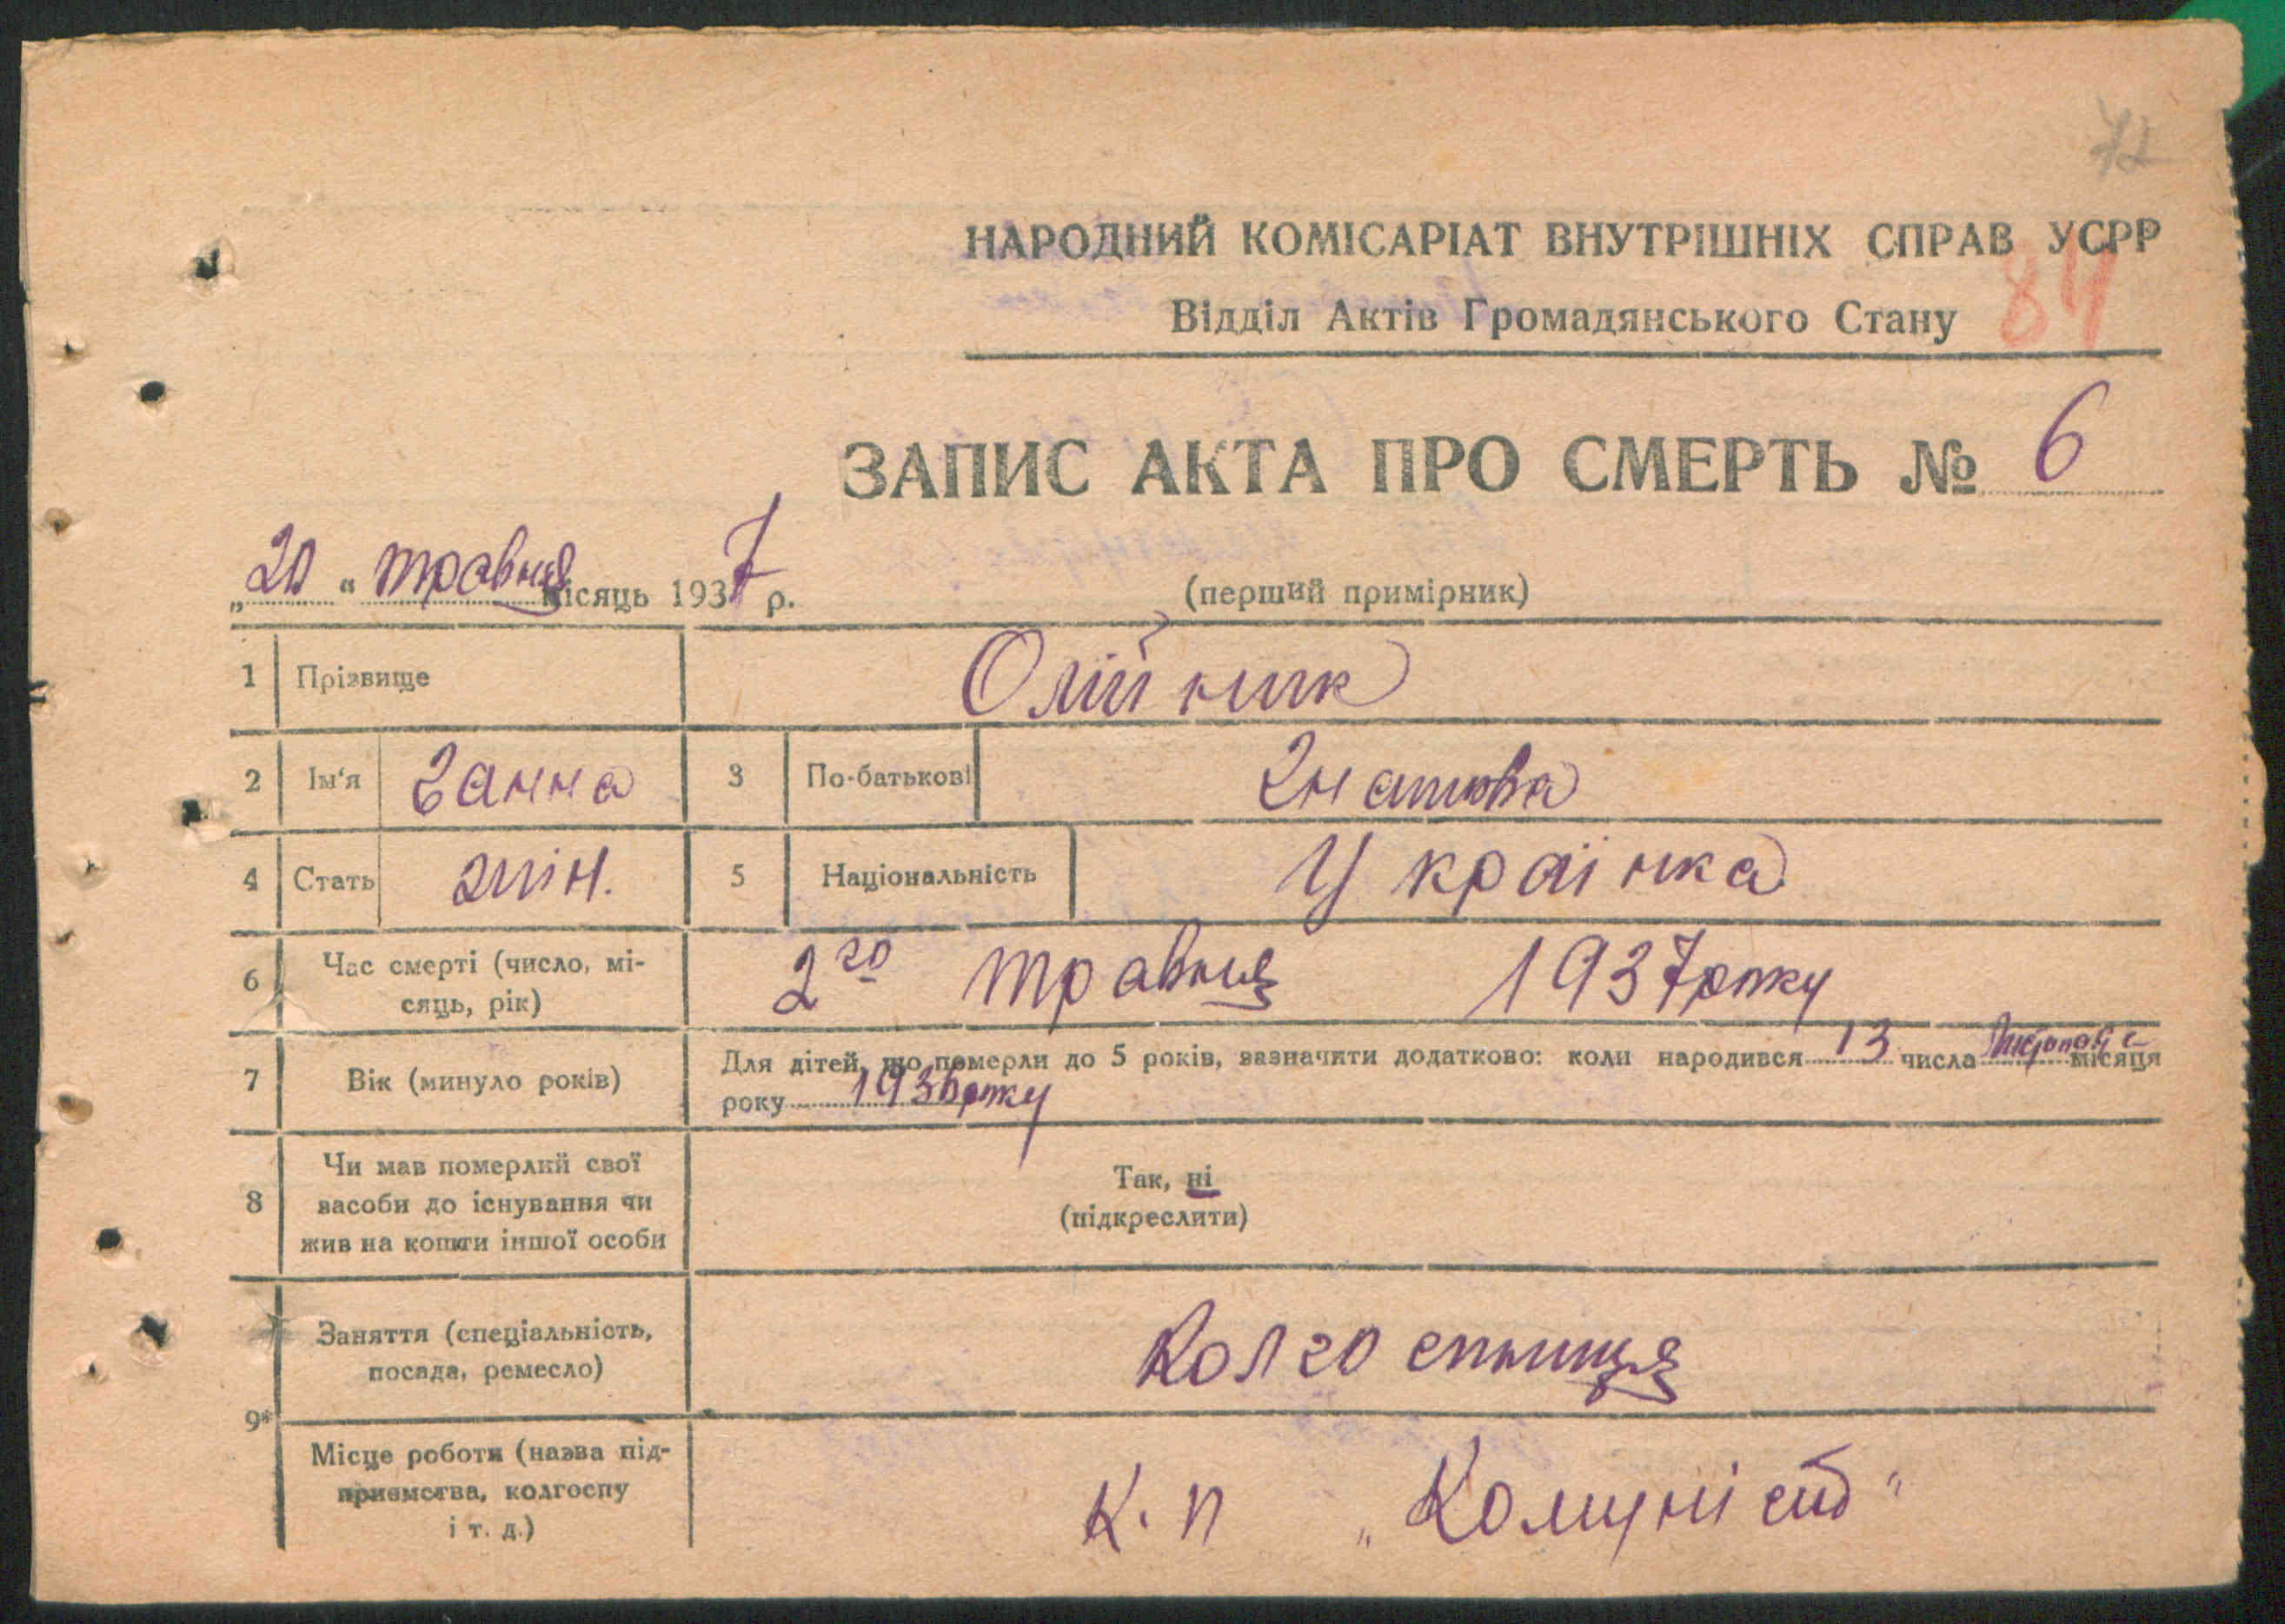 72
НАРОДНИЙ КОМІСАРІАТ ВНУТРІШНІХ СПРАВ УСРР
84
Відділ Актів Громадянського Стану
ЗАПИС АКТА ПРО СМЕРТЬ № 6
„20“ травня місяць 1937 р.
(перший примірник)
1 Прізвище Олійник
2 Ім'я Ганна 3 По-батькові Гнатова
4 Стать жін. 5 Національність Українка
6 Час смерті (число, мі-
сяць, рік)
2го травня 1937 року
7 Вік (минуло років)
Для дітей, що померли до 5 років, зазначити додатково: коли народився 13 числа місяця
року 1936 року
8 Чи мав померлий свої
засоби до існування чи
жив на кошти іншої особи
Так, ні
(підкреслити)
9*
Заняття (спеціальність,
посада, ремесло)
Колгоспниця
Місце роботи (назва під-
приємства, колгоспу
і т. д.)
К. п „Комуніст"